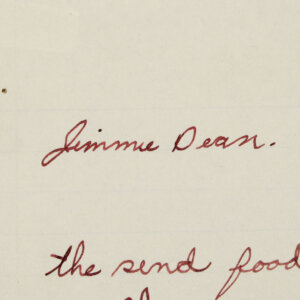 Jimmie Dean.
the send food